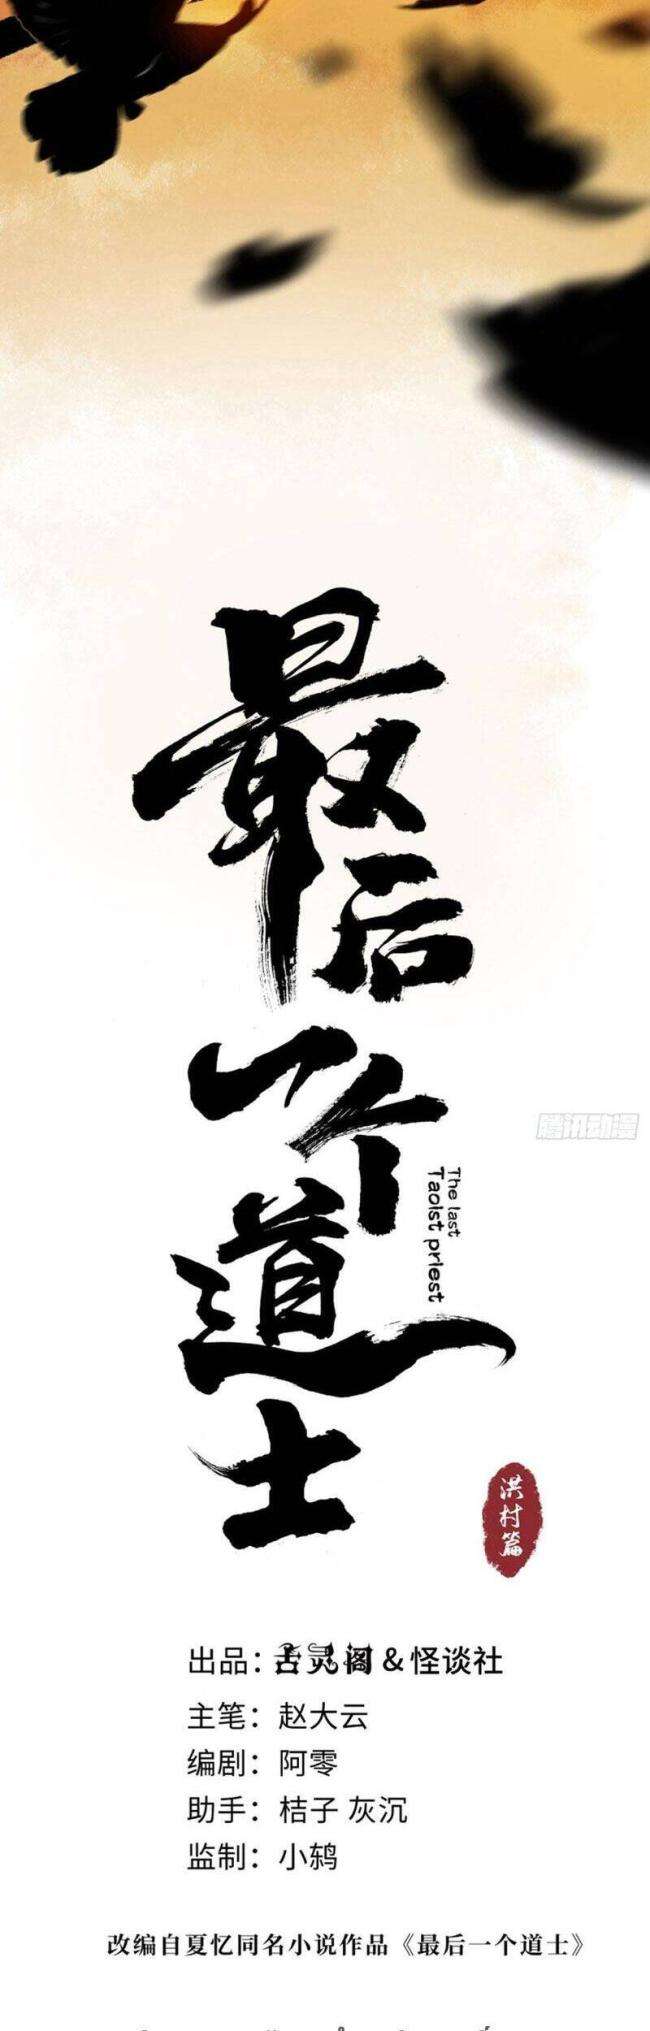 最后一个道士
The last
Taoist priest
腾讯动漫
洪村篇
出品：古灵阁＆怪谈社
主笔：赵大云
编剧：阿零
助手：桔子 灰沉
监制：小鸫
改编自夏忆同名小说作品《最后一个道士》